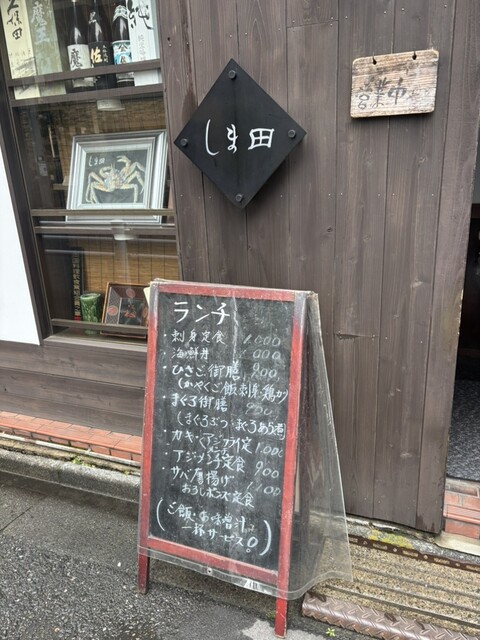 しま田
営業中
しま田
ランチ
・刺身定食 1,000
・海鮮丼
・ひさご御膳 900
(かやくご飯 刺身 鶏か)
・まぐろ御膳
(まぐろぶつ・まぐろあら煮)
・カキ・アジフライ定 1,000
・アジメンチ定食 900
・サバ唐揚げ 1,100
おろしポンズ定食
(ご飯・お味噌汁
一杯サービス。)